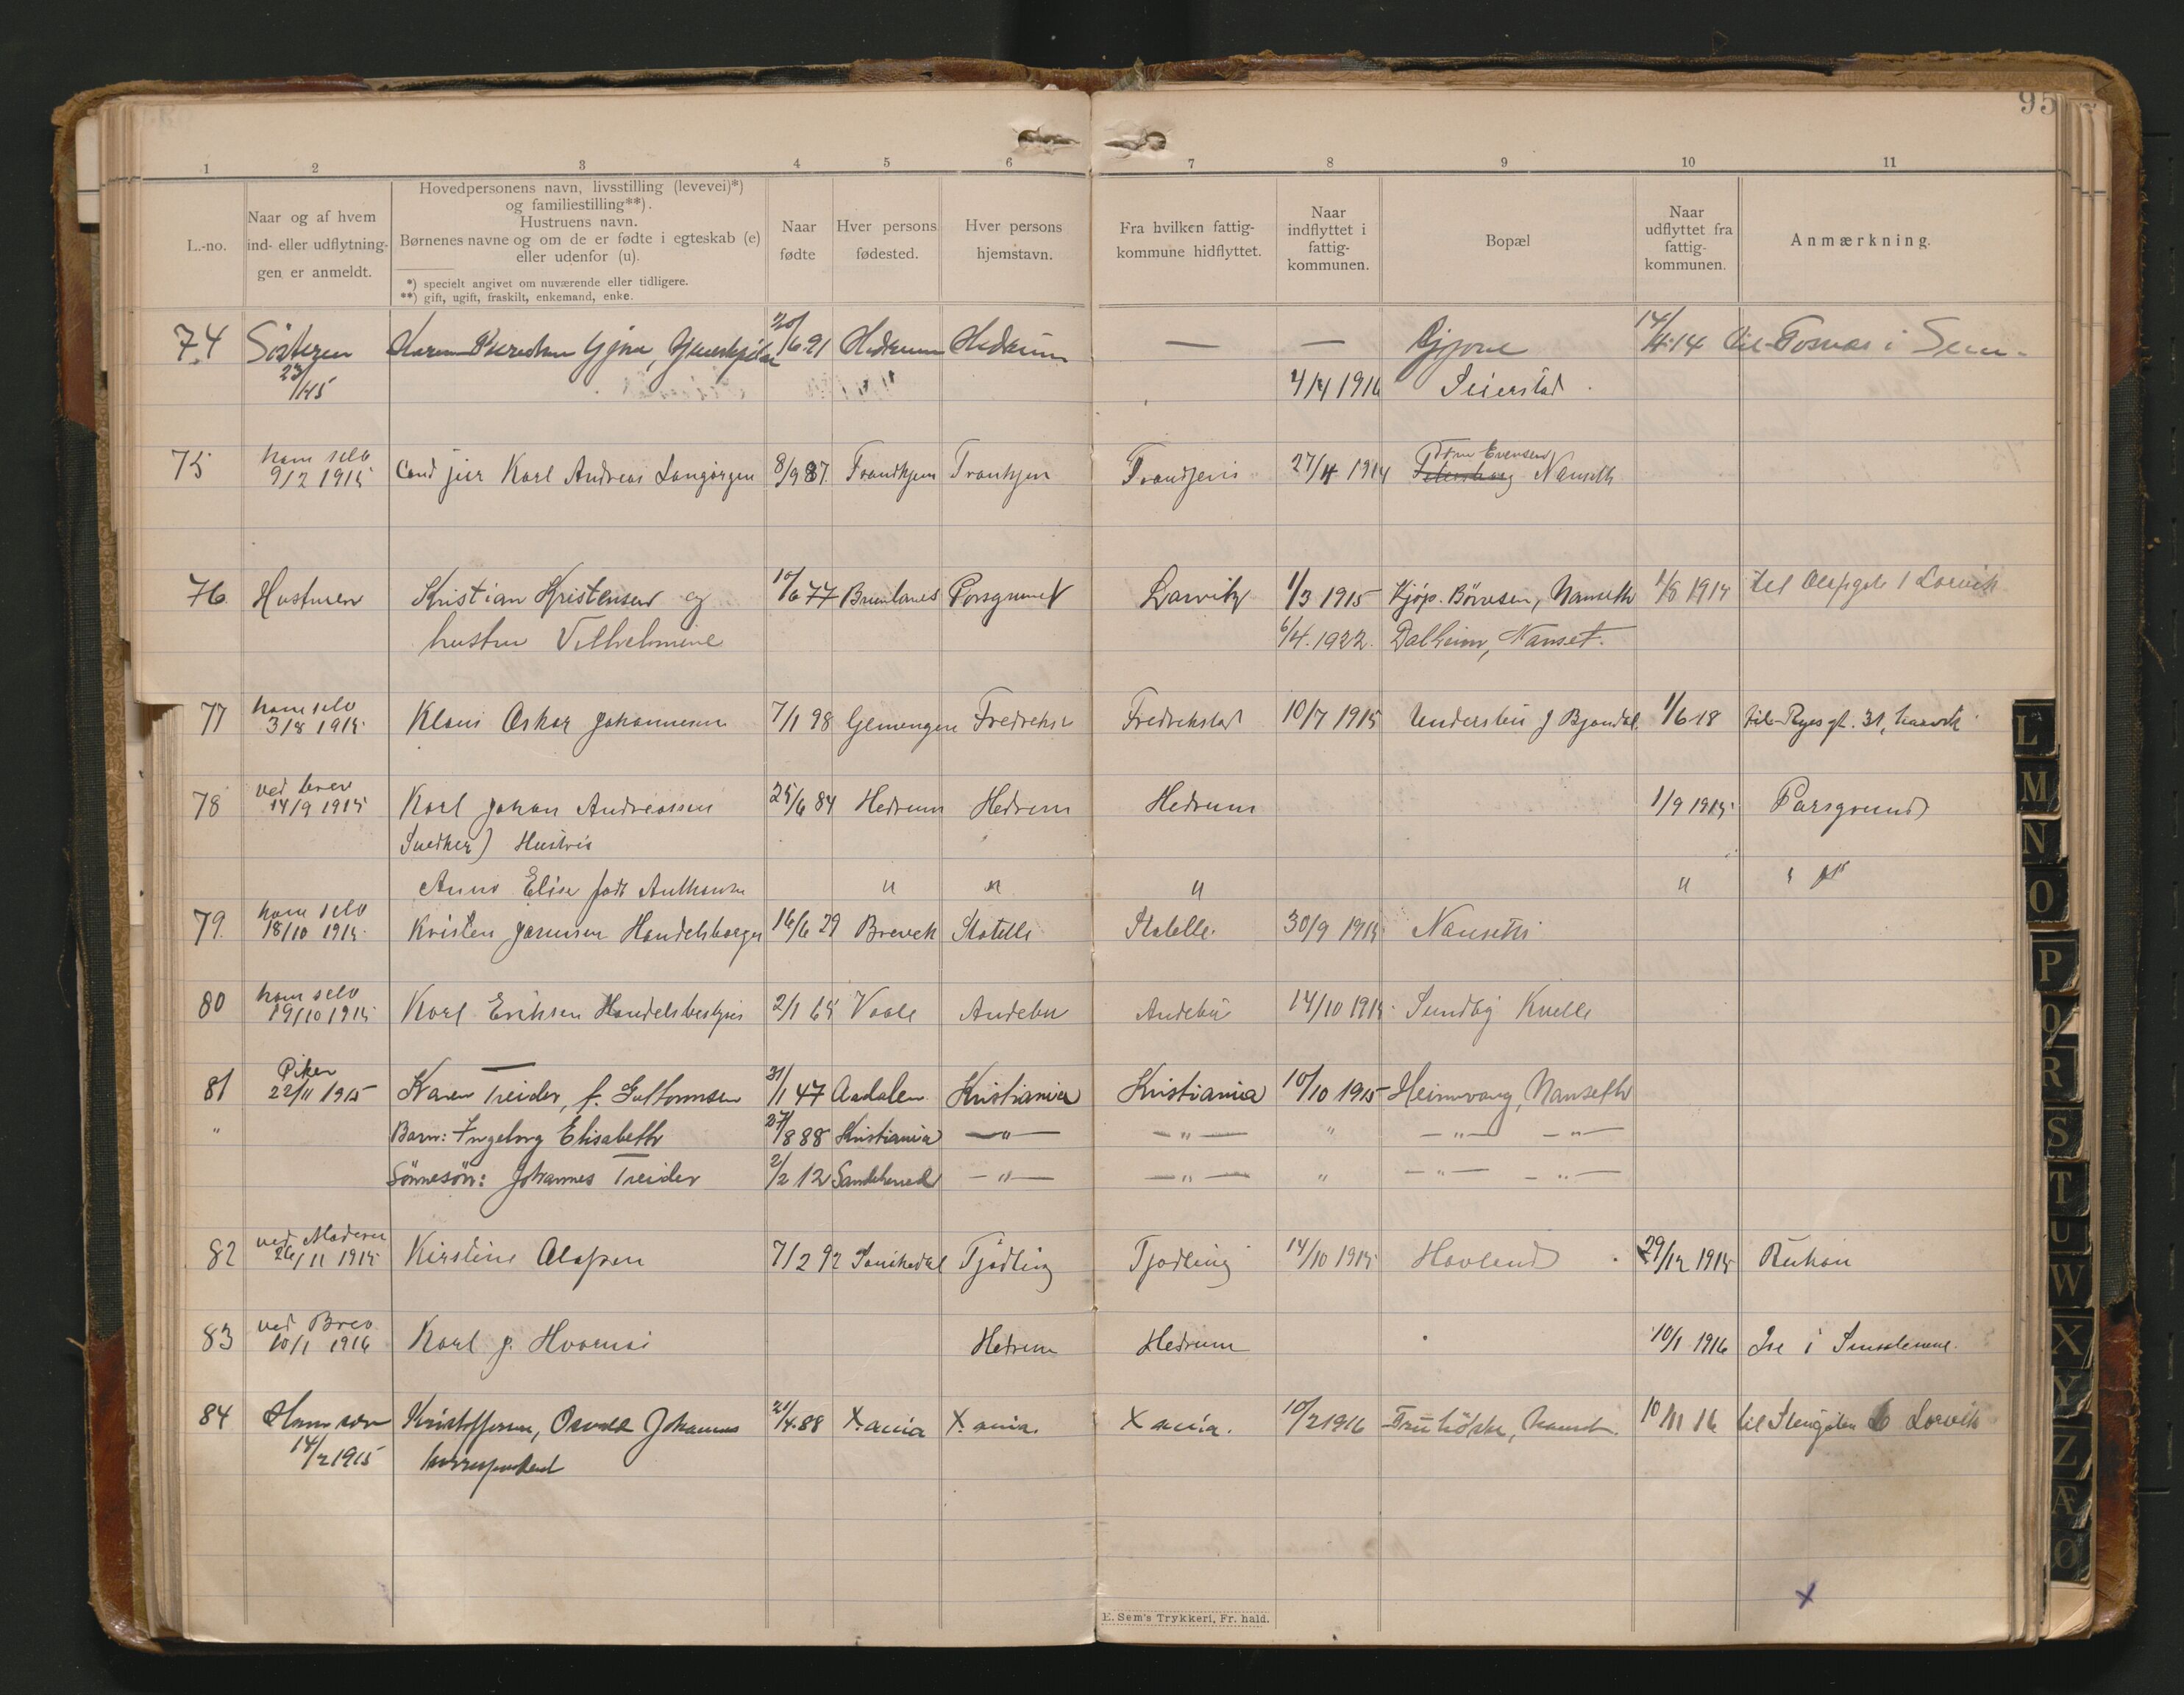 95
1 2 3 4 5 6 7 8 9 10 11
L.-no.
Naar og af hvem
ind- eller udflytning-
gen er anmeldt.
Hovedpersonens navn, livsstilling (levevei)*)
og familiestilling**).
Hustruens navn.
Børnenes navne og om de er fødte i egteskab (e)
eller udenfor (u).
*) specielt angivet om nuværende eller tidligere.
**) gift, ugift, fraskilt, enkemand, enke.
Naar
fødte
Hver persons
fødested.
Hver persons
hjemstavn.
Fra hvilken fattig-
kommune hidflyttet.
Naar
indflyttet i
fattig-
kommunen.
Bopæl
Naar
udflyttet fra
fattig-
kommunen.
Anmærkning.
74 Søsteren Karen Gjone, 20/6 91 Hedrum Hedrum — — Gjone 14/4 14 til i Sem
23/1 15 4/4 1916 Seierstad
75 ham selv 9/2 1915 Cand jur Karl Andreas Langørgen 8/9 87 Trondhjem Tronhjem Trondjem 27/4 1914 Evensen Nanseth
76 Hustruen Kristian Kristensen og 10/6 77 Brunlanes Porsgrund Larvik 1/3 1915 Kjøp. Børresen, Nanseth 1/8 1915 til Larvik
hustru Vilhelmine 6/4. 1922. Dalheim, Nanset.
77 ham selv 3/8 1915 Klaus Oskar Johannesen 7/1 98 Glemmingen Fredrikst Fredrikstad 10/7 1915 J Bjøndal 1/6 18 til Ryes gt. 31, Larvik
78 ved brev 14/9 1915 Karl Johan Andreassen 25/6 84 Hedrum Hedrum Hedrum 1/9 1915 Porsgrund
Snedker) Hustru
Anna Elise født Anthonsen " " " " "
79. ham selv 18/10 1915 Kristen Jørunsen Handelsborger 16/6 79 Brevik Statelle Statelle 30/9 1915 Nanseth
80 ham selv 19/10 1915 Karl Eriksen Handelsbestyrer 2/1 65 Vaale Andebu Andebu 14/10 1915 Sundby Kvelle
81 Piken 22/11 1915 Karen Treider, f. Guttormsen 31/1 47 Aadalen Kristiania Kristiania 10/10 1915 Heimvang, Nanseth
" Barn: Ingeborg Elisabeth 27/8 88 Kristiania —"— —"— " —"— —"—
Sönnesön: Johannes Treider 2/2 12 Sandeherred —"— —"— " —"— —"—
82 ved Moderen 26/11 1915 Kirstine Olafsen 7/2 92 Tjødling Tjodling 14/10 1915 Hovland 29/12 1915 Rukan
83 ved Brev 10/1 1916 Karl J. Hedrum Hedrum 10/1 1916
84 Ham selv Kristoffersen, Osvald Johannes 21/4. 88 X.ania X.ania. X ania. 10/2 1916 Nanset. 10/11 16 til Larvik
14/2 1915 korrespondent
E. Sem's Trykkeri, Fr. hald.
X
L
M
N
O
P
Q
R
S
T
U
W
X
Y
Z
Æ
Ø